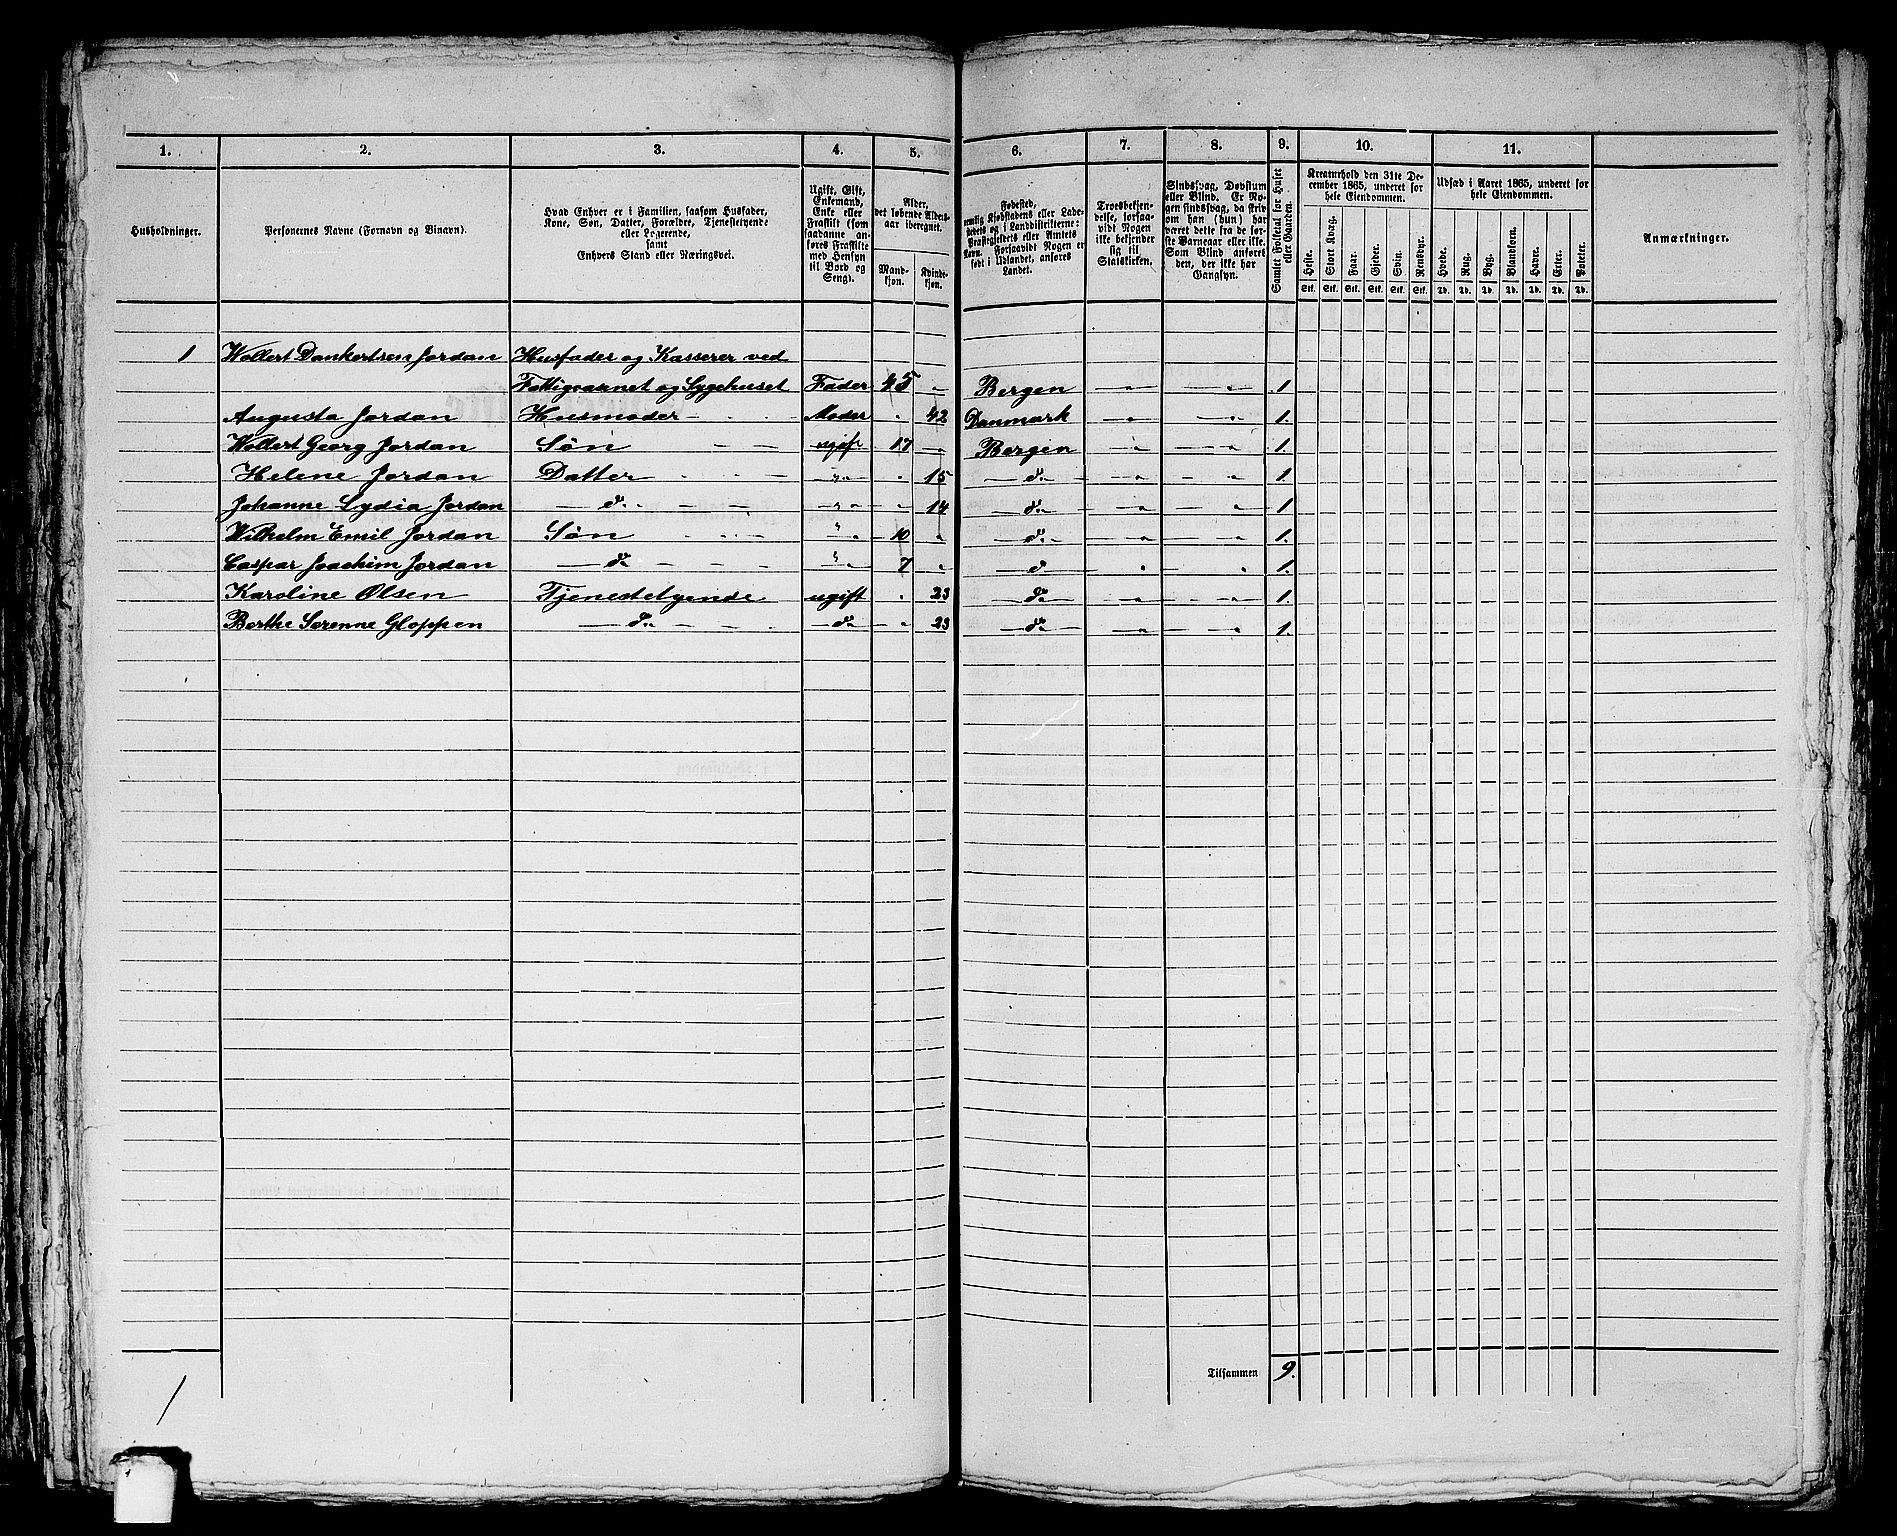 1. 2. 3. 4. 5. 6. 7. 8. 9. 10. 11.
Husholdninger.
Personernes Navne (Fornavn og Binavn).
Hvad Enhver er i Familien, saasom Husfader,
Kone, Søn, Datter, Forældre, Tjenestetyende
eller Logerende,
samt
Enhvers Stand eller Næringsvei.
Ugift, Gift,
Enkemand,
Enke eller
Fraskilt (som
saadanne an-
føres Fraskilte
med Hensyn
til Bord og
Seng).
Alder,
det løbende Alders-
aar iberegnet.
Mand-
kjøn.
Kvinde-
kjøn.
Fødested,
nemlig Kjøbstadens eller Lade-
stedets og i Landdistrikterne:
Præstegjeldets eller Amtets
Navn. Forsaavidt Nogen er
født i Udlandet, anføres
Landet.
Troesbekjen-
delse, forsaa-
vidt Nogen
ikke bekjender
sig til
Statskirken.
Sindssvag, Døvstum
eller Blind. Er No-
gen sindssvag, da skriv
om han (hun) har
været dette fra de før-
ste Barneaar eller ikke.
Som Blind anføres
den, der ikke har
Gangsyn.
Samlet Folketal for Huset
eller Gaarden.
Kreaturhold den 31te De-
cember 1865, underet for
hele Eiendommen.
Heste. Stort Kvæg. Faar. Gjeder. Svin. Rensdyr.
Stk. Stk. Stk. Stk. Stk. Stk.
Udsæd i Aaret 1865, underet for
hele Eiendommen.
Hvede. Rug. Byg. Blandkorn. Havre. Erter. Poteter.
Td. Td. Td. Td. Td. Td. Td.
Anmærkninger.
1 Wollert Dankertsen Jordan Husfader og Kasserer ved
Fattigvæsnet og Sygehuset Fader 45 — Bergen — " — — " — 1.
Augusta Jordan Husmoder — Moder " 42 Danmark — " — — " — 1.
Wollert Georg Jordan Søn — — ugift 17 — Bergen — " — — " — 1.
Helene Jordan Datter — " — " 15 — do — — " — — " — 1.
Johanne Lydia Jordan — do — — " — " 14 — do — — " — — " — 1.
Wilhelm Emil Jordan Søn — — " — 10 " — do — — " — — " — 1.
Caspar Joachim Jordan — do — — " — 7 " — do — — " — — " — 1.
Karoline Olsen Tjenestetyende ugift " 23 — do — — " — — " — 1.
Berthe Serenne Gloppen — do — — do — " 23 — do — — " — — " — 1.
Tilsammen 9.
1